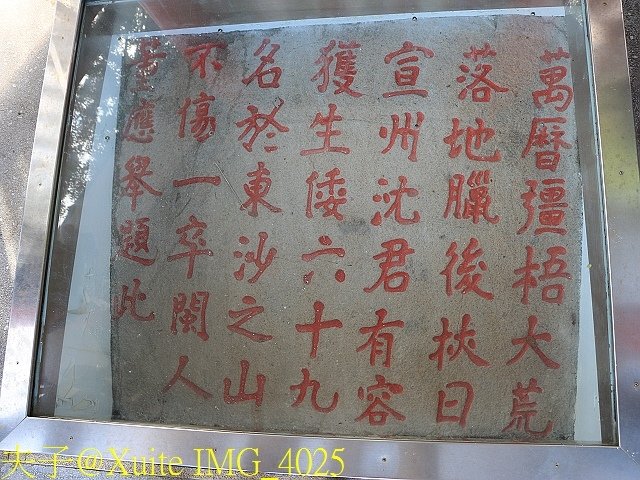 萬曆彊梧大荒
落地臘後挾日
宣州沈君有容
獲生倭六十九
名於東沙之山
不傷一卒閩人
董應舉題此
夫子@Xuite IMG_4025